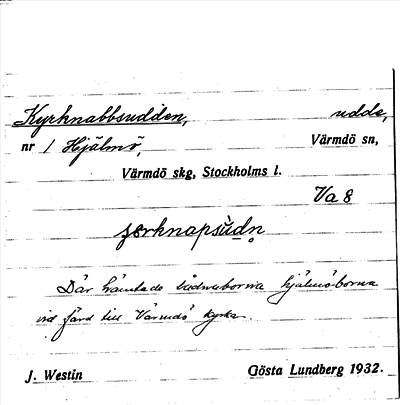 Kyrknabbsudden, udde,
nr 1 Hjälmö, Värmdö sn,
Värmdö skg, Stockholms l.
Va 8
Där hämtade hjälmöborna
vid färd till Värmdö kyrka.
J. Westin Gösta Lundberg 1932.